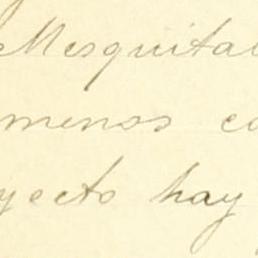 Mesquital
menos co
yecto hay